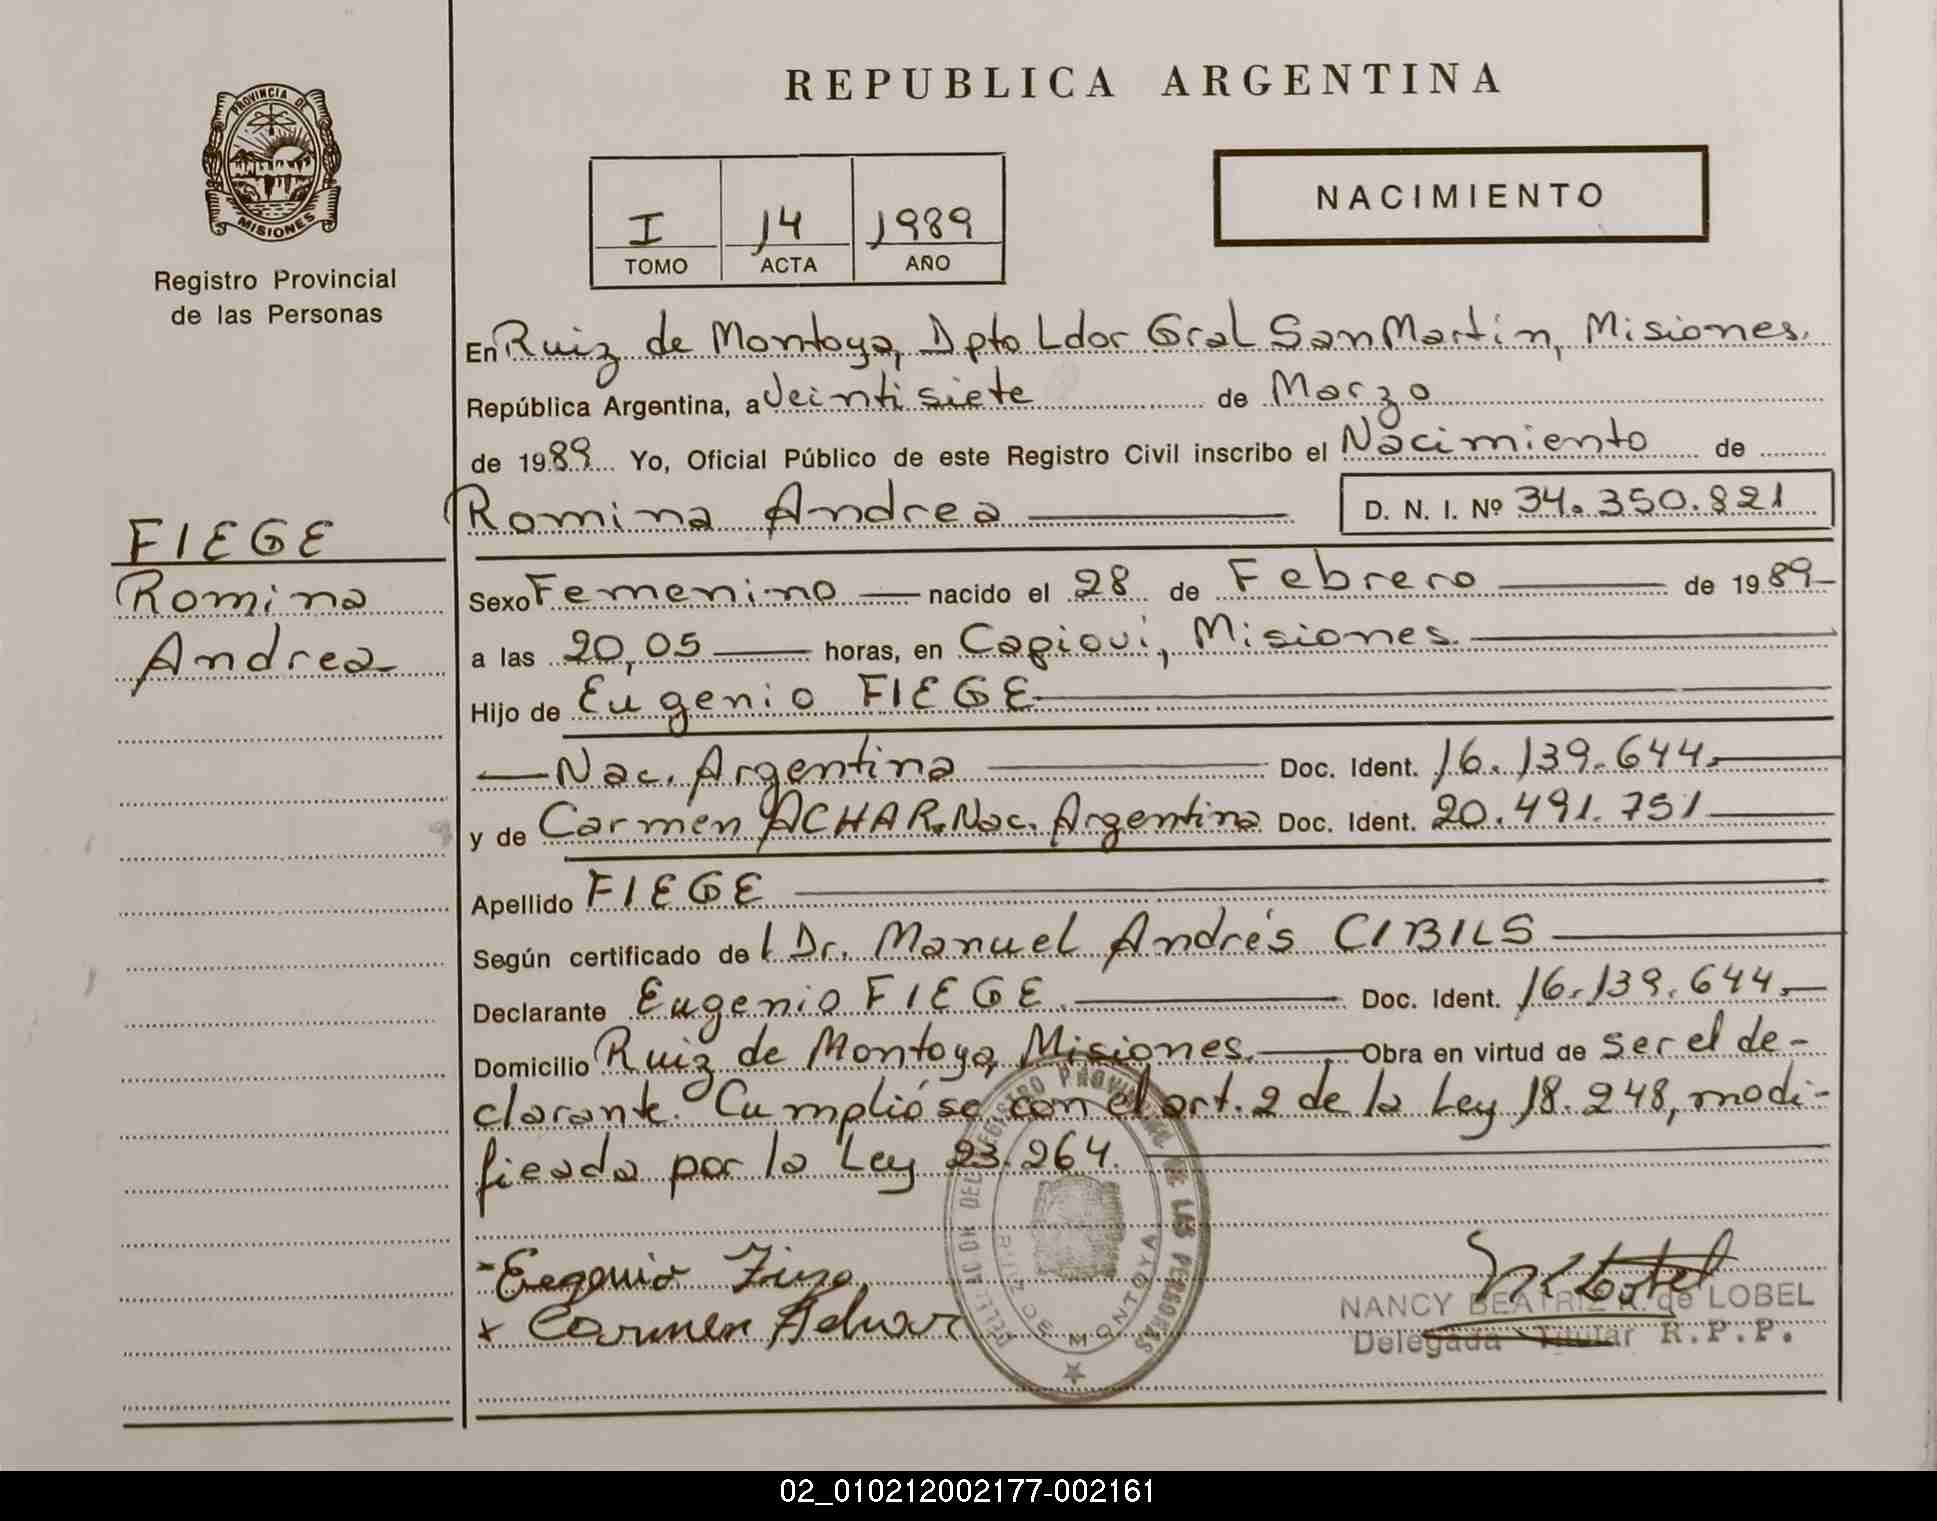 REPUBLICA ARGENTINA
PROVINCIA DE
MISIONES
Registro Provincial
de las Personas
I 14 1989
TOMO ACTA AÑO
NACIMIENTO
En Ruiz de Montoya, Dpto Ldor Gral San Martín, Misiones.
República Argentina, a Veintisiete de Marzo
de 1989 Yo, Oficial Público de este Registro Civil inscribo el Nacimiento de
Romina Andrea D. N. I. Nº 34.350.821
FIEGE
Romina
Andrea
Sexo Femenino nacido el 28 de Febrero de 1989
a las 20,05 horas, en Capioví, Misiones.
Hijo de Eugenio FIEGE
Nac. Argentina Doc. Ident. 16.139.644.
y de Carmen ACHAR. Nac. Argentina Doc. Ident. 20.491.751
Apellido FIEGE
Según certificado del Dr. Manuel Andrés CIBILS
Declarante Eugenio FIEGE. Doc. Ident. 16.139.644.
Domicilio Ruiz de Montoya, Misiones. Obra en virtud de ser el de-
clarante. Cumplióse con el art. 2 de la Ley 18.248, modi-
ficada por la Ley 23.264.
DEL REGISTRO PROVINCIAL DE LAS PERSONAS
RUIZ DE MONTOYA
Eugenio
x Carmen Achar
NANCY BEATRIZ de LOBEL
Delegada Titular R.P.P.
02_010212002177-002161